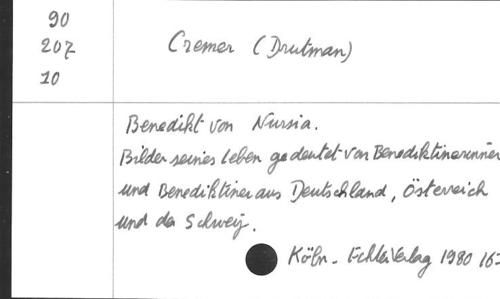 90
207
10
Cremer (Drutman)
Benedikt von Nursia.
Bilder seines Leben gedeutet von Benediktinerinnen
und Benediktiner aus Deutschland, Österreich
und der Schweiz.
Köln - Echter Verlag 1980 16